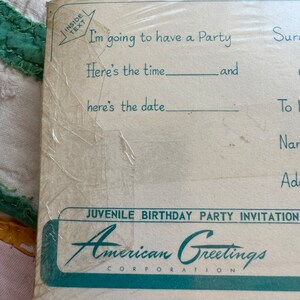 INSIDE TEXT
I'm going to have a Party
Here's the time________and
here's the date________
To
JUVENILE BIRTHDAY PARTY INVITATION
American Greetings
CORPORATION